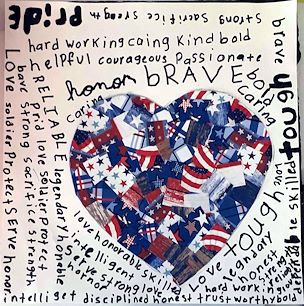 pride
strong sacrifice strength
hard working caing Kind bold
helpful courageous Passionate
honor bRAVE bold
caring
caring
brave tough skilled
Love soldier Protect SErVE honor
bave strong sacrifice strength
Prid love soldier protect
RELIABLE legendary honable
tough
Love
love honorable skilled
intelligent
serve strong love
honor
tough
Love legendary
honest
hard working strong
intelliget disciplined honest trust worthy bold